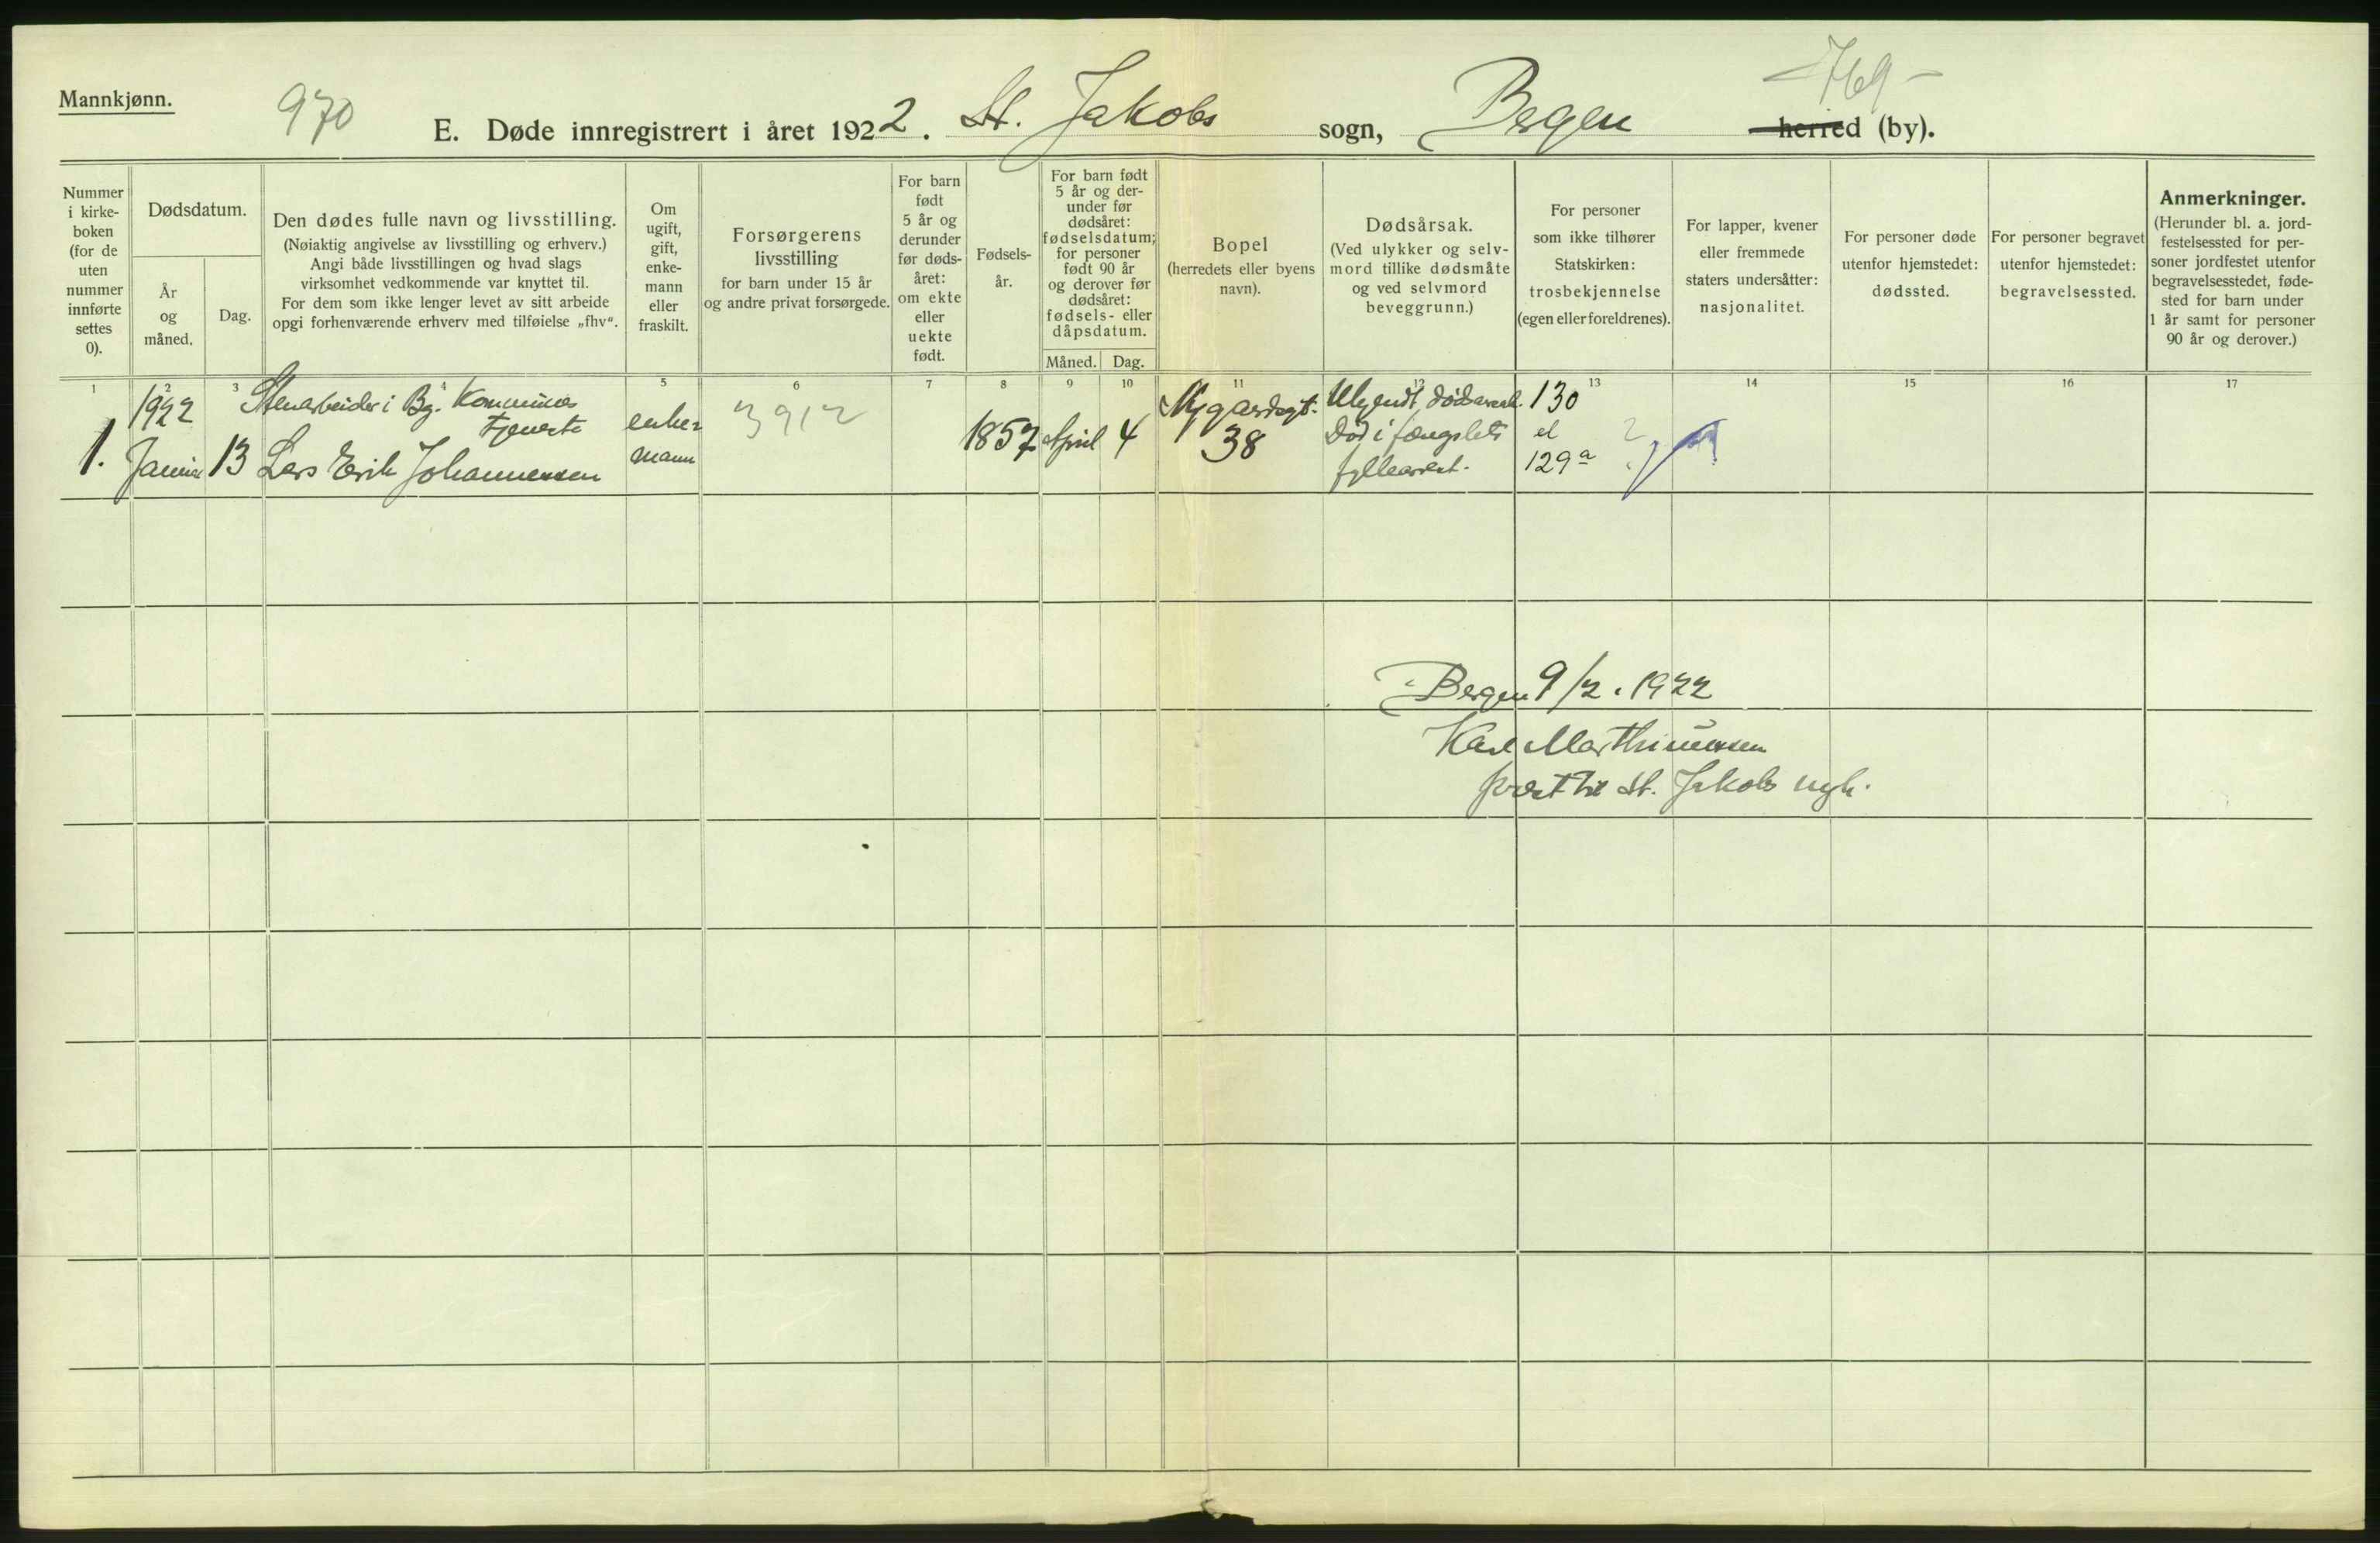 Mannkjønn.
970
769
E. Døde innregistrert i året 1922. St. Jakobs sogn, Bergen herred (by).
Nummer i kirkeboken (for de uten nummer innførte settes 0).
Dødsdatum.
År og måned.
Dag.
Den dødes fulle navn og livsstilling.
(Nøiaktig angivelse av livsstilling og erhverv.)
Angi både livsstillingen og hvad slags
virksomhet vedkommende var knyttet til.
For dem som ikke lenger levet av sitt arbeide
opgi forhenværende erhverv med tilføielse „fhv“.
Om ugift, gift, enkemann eller fraskilt.
Forsørgerens livsstilling
for barn under 15 år
og andre privat forsørgede.
For barn født 5 år og derunder før dødsåret: om ekte eller uekte født.
Fødselsår.
For barn født 5 år og derunder før dødsåret: fødselsdatum; for personer født 90 år og derover før dødsåret: fødsels- eller dåpsdatum.
Måned.
Dag.
Bopel
(herredets eller byens navn).
Dødsårsak.
(Ved ulykker og selvmord tillike dødsmåte og ved selvmord beveggrunn.)
For personer som ikke tilhører Statskirken: trosbekjennelse (egen eller foreldrenes).
For lapper, kvener eller fremmede staters undersåtter: nasjonalitet.
For personer døde utenfor hjemstedet: dødssted.
For personer begravet utenfor hjemstedet: begravelsessted.
Anmerkninger.
(Herunder bl. a. jordfestelsessted for personer jordfestet utenfor begravelsesstedet, fødested for barn under 1 år samt for personer 90 år og derover.)
1 2 3 4 5 6 7 8 9 10 11 12 13 14 15 16 17
1.
1922
Januar
13
Stenarbeider i Bg. Kommunes
tjeneste
Lars Erik Johannessen
enke-
mann
3912
1857
April
4
Nygaardsgt.
38
Ukjendt dødsaarsak.
Død i fængslets
fyllearrest.
130
el
129a
?
Bergen 9/2. 1922
Karl Marthinussen
prest til St. Jakobs